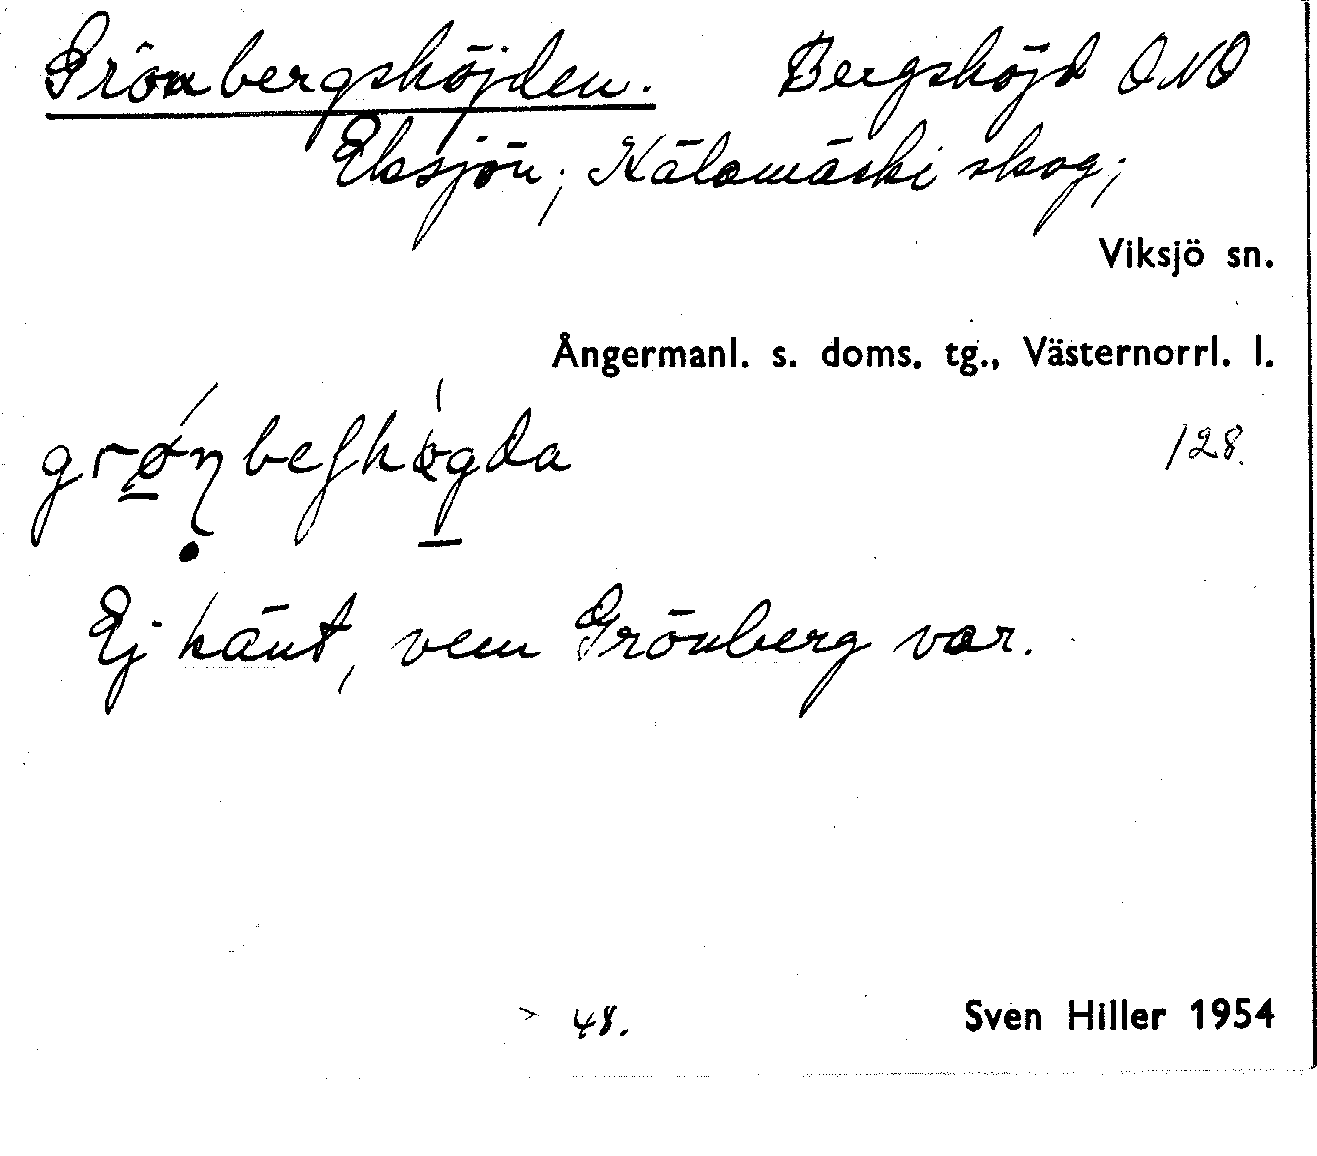 Grönbergshöjden. Bergshöjd ONO
Eksjön; Kälsmäski skog;
Viksjö sn.
Ångermanl. s. doms. tg., Västernorrl. l.
128.
Ej känt, vem Grönberg var.
48.
Sven Hiller 1954